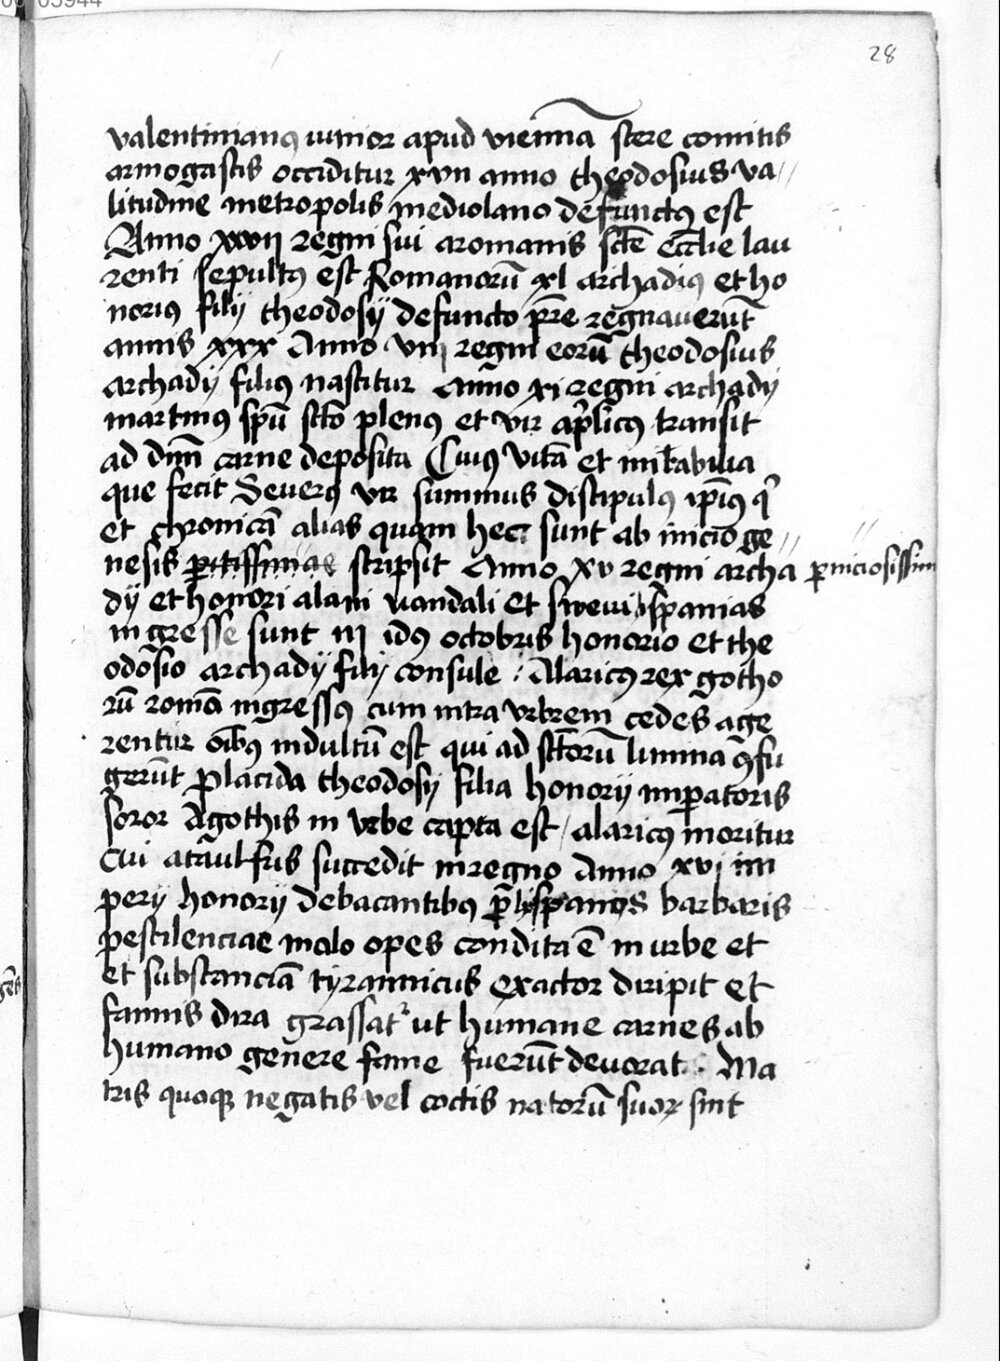 05944
28
valentinianꝯ iunior apud viennā scere comitis
armogastis occiditur xvii anno theodosius va//
litudine metropolis mediolano defunctꝯ est
Anno xxvij regni sui aromanis scē eccĺie lau
renti sepultꝯ est Romanorū xl archadiꝯ et ho
noriꝯ filij theodosij defuncto pr̄e regnauerūt
annis xxx Anno viij regni eorū theodosius
archadij filiꝯ nascitur Anno xi regni archadij
martinꝯ spū scō plenꝯ et vir apĺicꝯ transit
ad dnm̄ carne deposita Cuiꝯ vitā et mirabilia
que fecit Seuerꝯ vir summus discipulꝯ ipiꝯ q
et chronicā alias quam hec sunt ab inicio ge//
nesis scripsit Anno xv regni archa ꝑniciosissim
dij et honori alani vandali et swevi ispanias
ingresse sunt iii idꝯ octobris honorio et the
odosio archadij filij consule Alaricꝯ rex gotho
rū romā ingressꝯ cum intra vrbem cedes age
rentur oībꝯ indultū est qui ad sctorū limina ꝯfu
gerūt placida theodosij filia honorij imꝑatoris
soror Agothis in vrbe capta est / alaricꝯ moritur
cui ataulfus succedit in regno Anno xvi im
perij honorij debacantibꝯ ꝑ ispanias barbaris
pestilenciae malo opes condita ē in urbe et
et substanciā tyrannicus exactor diripit et
famis dira grassat ut humane carnes ab
humano genere fame fuerūt deuorat Ma
tris quoqꝫ negatis vel coctis natorū suoꝝ sint